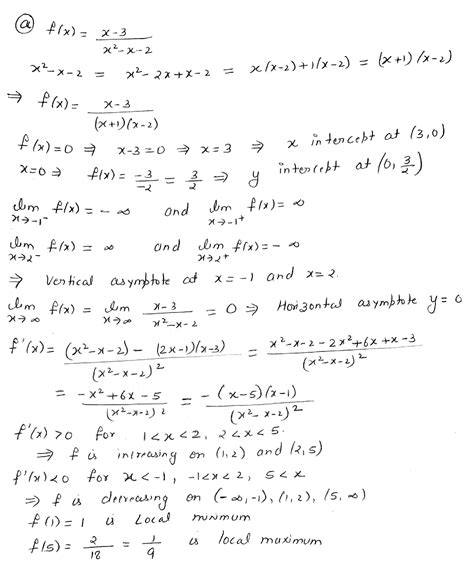 (a) f(x) = (x-3)/(x²-x-2)
x²-x-2 = x²-2x+x-2 = x(x-2)+1(x-2) = (x+1)(x-2)
⇒ f(x) = (x-3)/((x+1)(x-2))
f(x)=0 ⇒ x-3=0 ⇒ x=3 ⇒ x intercept at (3,0)
x=0 ⇒ f(x) = -3/-2 = 3/2 ⇒ y intercept at (0, 3/2)
lim x→-1⁻ f(x) = -∞ and lim x→-1⁺ f(x) = ∞
lim x→2⁻ f(x) = ∞ and lim x→2⁺ f(x) = -∞
⇒ Vertical asymptote at x=-1 and x=2.
lim x→∞ f(x) = lim x→∞ (x-3)/(x²-x-2) = 0 ⇒ Horizontal asymptote y=0
f'(x) = ((x²-x-2) - (2x-1)(x-3))/(x²-x-2)² = (x²-x-2-2x²+6x+x-3)/(x²-x-2)²
= (-x²+6x-5)/(x²-x-2)² = -(x-5)(x-1)/(x²-x-2)²
f'(x) >0 for 1<x<2, 2<x<5.
⇒ f is increasing on (1,2) and (2,5)
f'(x)<0 for x<-1, -1<x<2, 5<x
⇒ f is decreasing on (-∞,-1), (1,2), (5,∞)
f(1)=1 is Local minimum
f(5) = 2/18 = 1/9 is local maximum